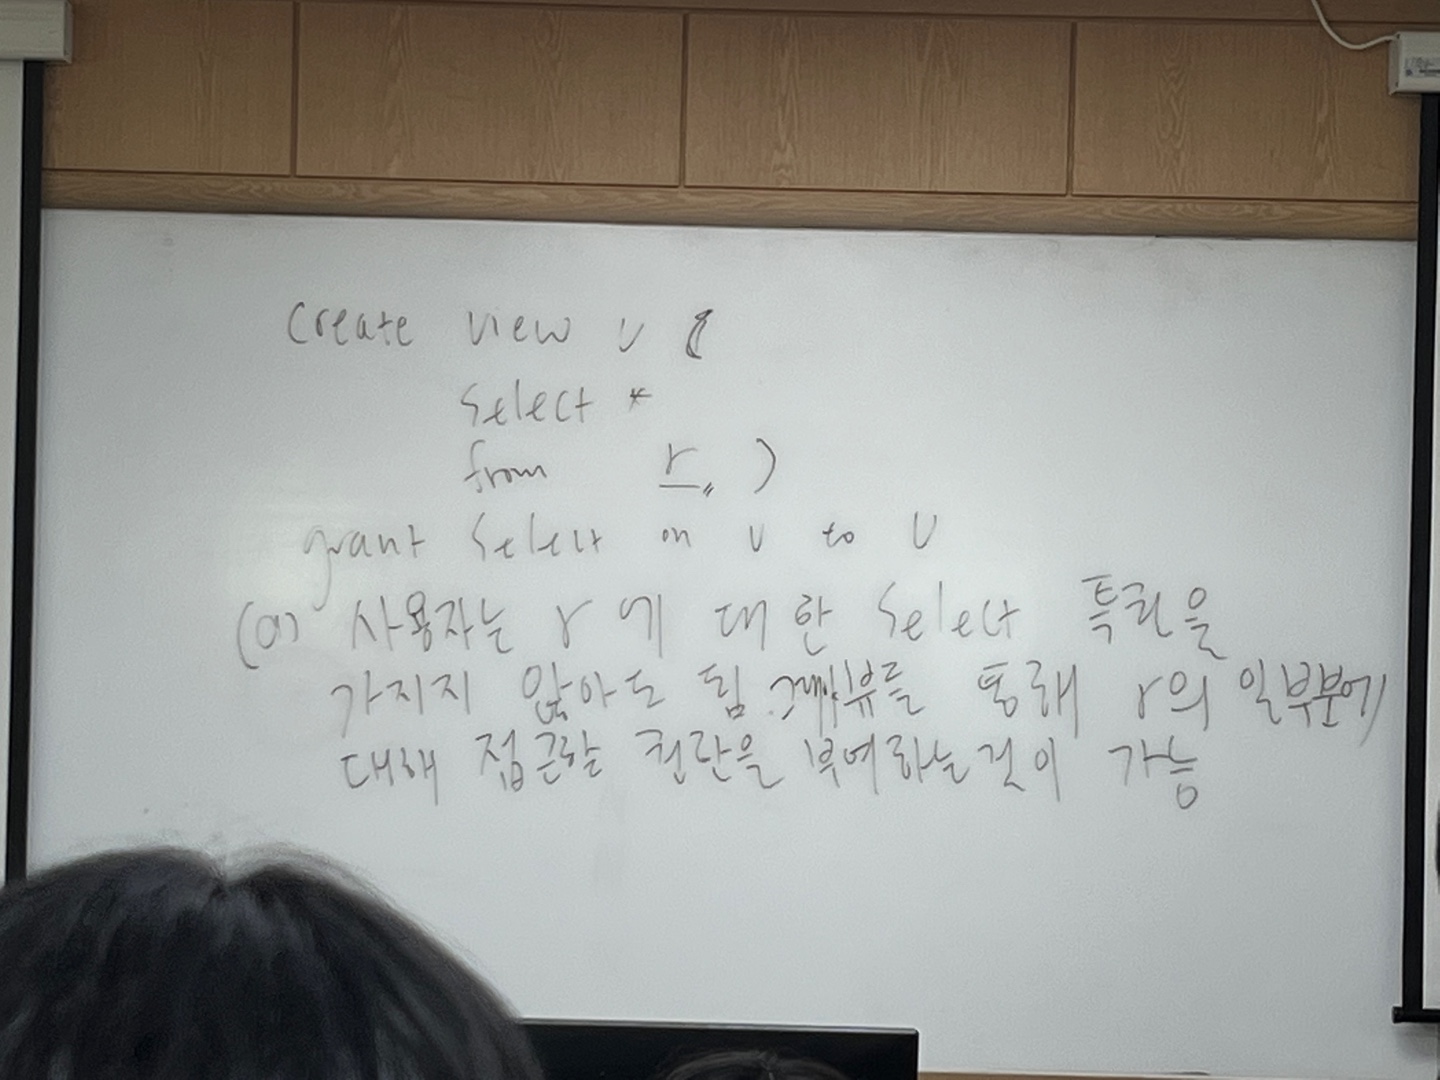 Create view v (
select *
from r )
grant select on v to U
(a) 사용자는 r에 대한 select 특권을
가지지 않아도 됨. 뷰를 통해 r의 일부분에
대해 접근할 권한을 부여하는 것이 가능